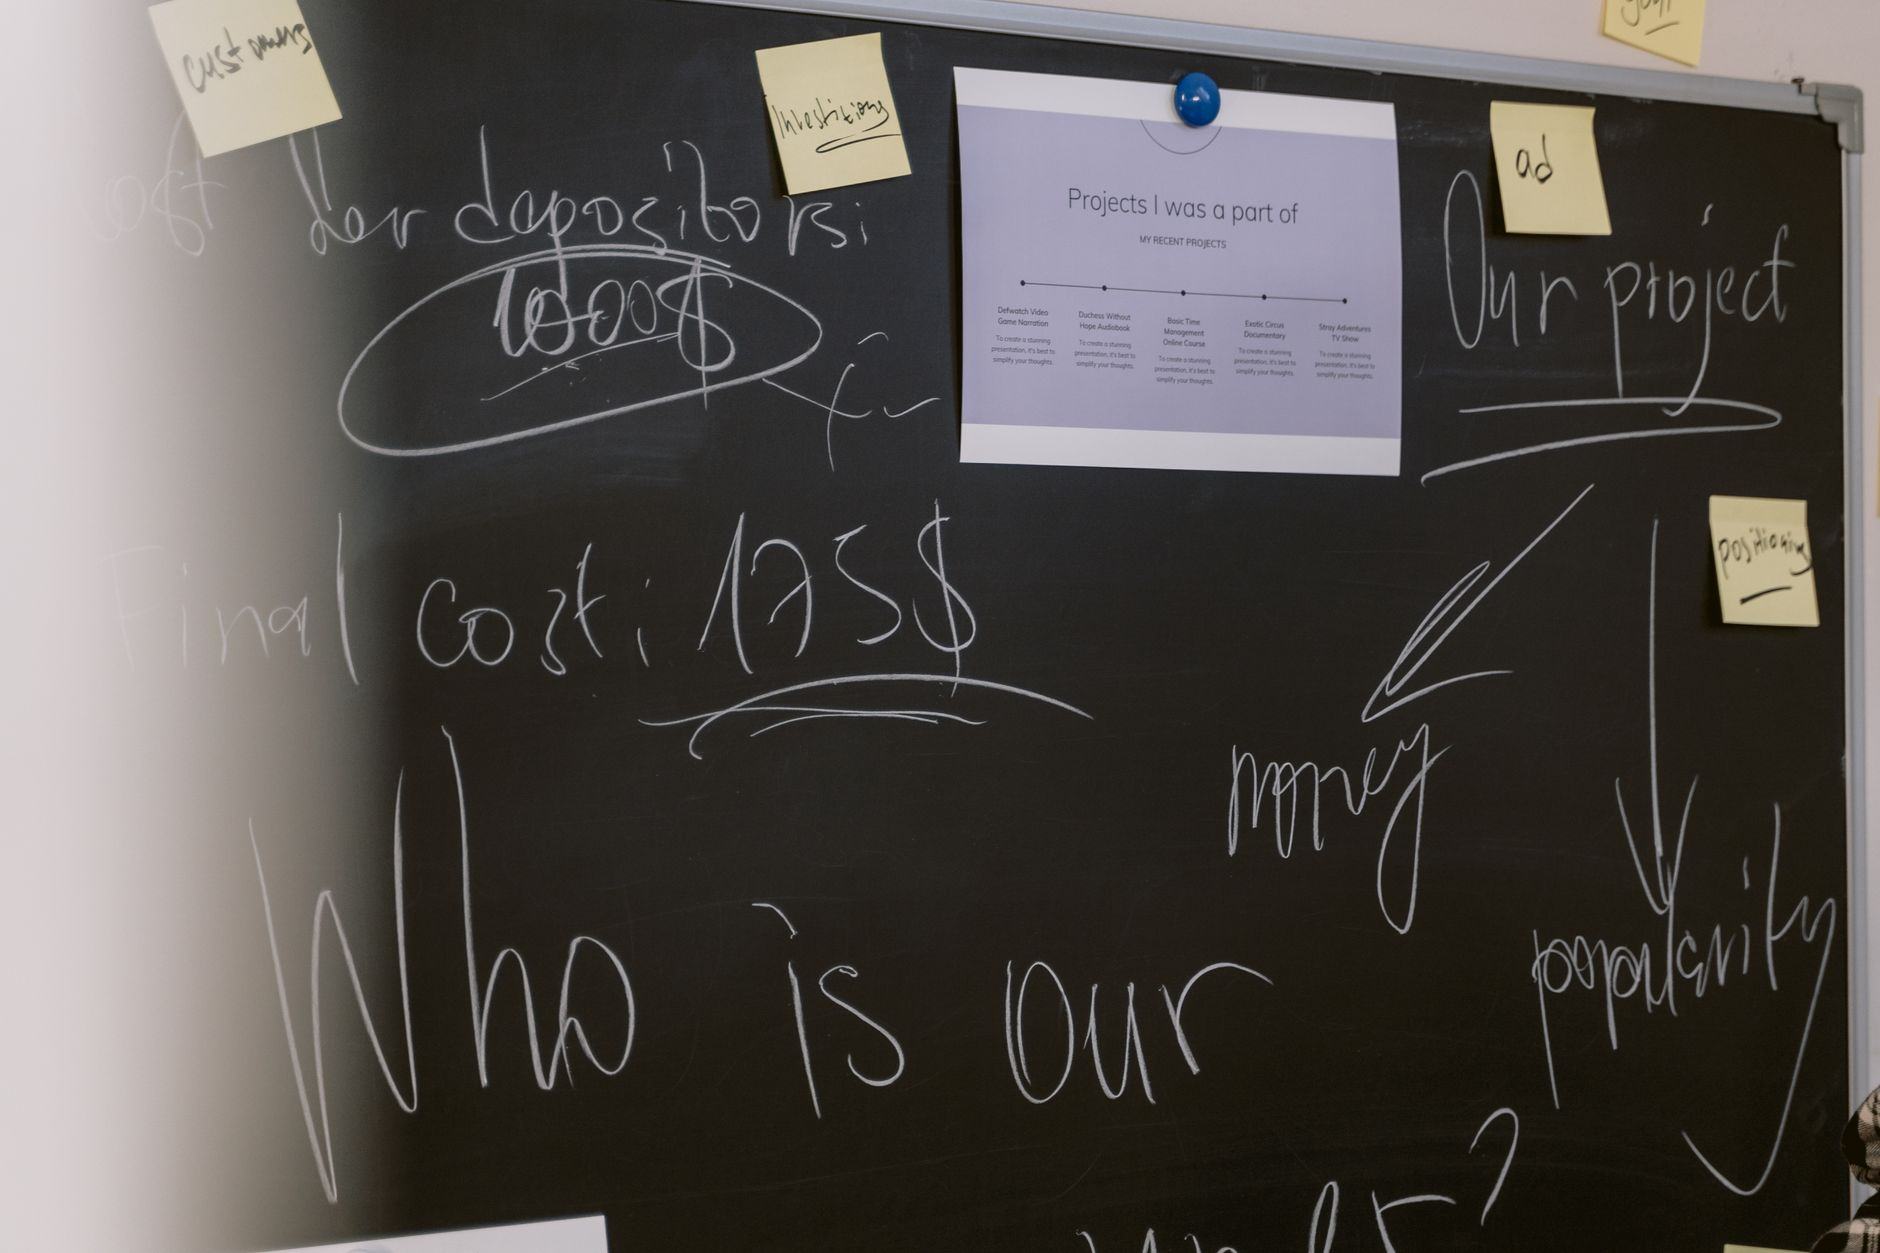 customers
Investitions
ad
depositors:
1000$
Final cost: 175$
Who is our
Projects I was a part of
MY RECENT PROJECTS
Defwatch Video
Game Narration
To create a stunning
presentation, it's best to
simplify your thoughts.
Duchess Without
Hope Audiobook
To create a stunning
presentation, it's best to
simplify your thoughts.
Basic Time
Management
Online Course
To create a stunning
presentation, it's best to
simplify your thoughts.
Exotic Circus
Documentary
To create a stunning
presentation, it's best to
simplify your thoughts.
Stray Adventures
TV Show
To create a stunning
presentation, it's best to
simplify your thoughts.
Our project
positioning
money
popularity